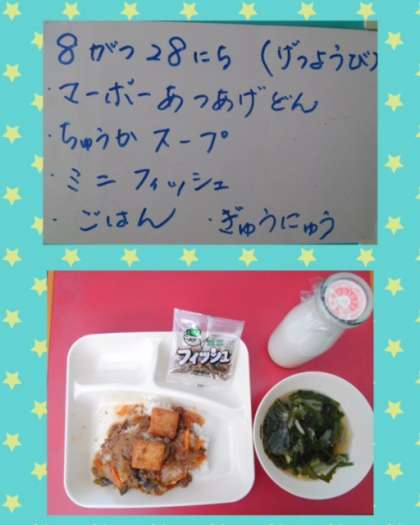 8がつ28にち (げつようび)
・マーボーあつあげどん
・ちゅうかスープ
・ミニフィッシュ
・ごはん ・ぎゅうにゅう
フィッシュ